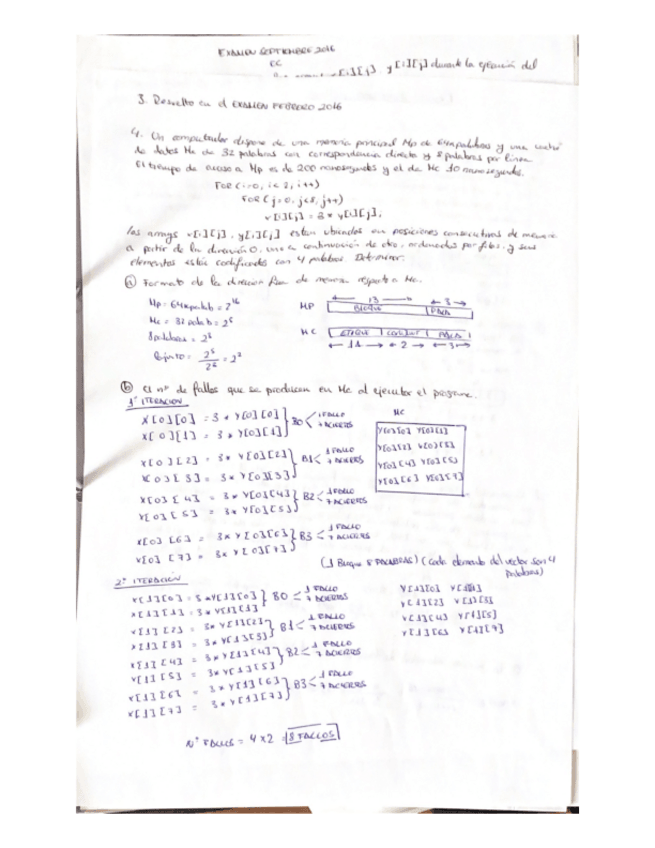 EXAMEN SEPTIEMBRE 2016
EC
y [i][j] durante la ejecución del
3. Resuelto en el EXAMEN FEBRERO 2016
4. Un computador dispone de una memoria principal Mp de 64Kpalabras y una caché
de datos Mc de 32 palabras con correspondencia directa y 8 palabras por línea.
El tiempo de acceso a Mp es de 200 nanosegundos y el de Mc 10 nanosegundos.
FOR (i=0, i<2, i++)
FOR (j=0, j<8, j++)
x[i][j] = 3 * y[i][j];
las arrays x[i][j], y[i][j] estan ubicados en posiciones consecutivas de memoria
a partir de la dirección 0, uno a continuación de otro, ordenados por filas, y sus
elementos están codificados con 4 palabras. Determinar:
a) Formato de la dirección física de memoria respecto a Mc.
Mp = 64Kpalab = 2^16
Mc = 32 palab = 2^5
8 palabras = 2^3
= 2^2
MP
13
3
BLOQUE
PALA
MC
ETIQUE
PALA
11
2
3
b) El nº de fallos que se producen en Mc al ejecutar el programa.
1ª ITERACION
X[0][0] = 3 * Y[0][0]
X[0][1] = 3 * Y[0][1]
B0 < 1 FALLO
7 ACIERTOS
X[0][2] = 3* Y[0][2]
X[0][3] = 3* Y[0][3]
B1 < 1 FALLO
7 ACIERTOS
X[0][4] = 3* Y[0][4]
X[0][5] = 3* Y[0][5]
B2 < 1 FALLO
7 ACIERTOS
X[0][6] = 3* Y[0][6]
X[0][7] = 3* Y[0][7]
B3 < 1 FALLO
7 ACIERTOS
MC
Y[0][0] Y[0][1]
Y[0][2] Y[0][3]
Y[0][4] Y[0][5]
Y[0][6] Y[0][7]
(1 Bloque 8 PALABRAS) (Cada elemento del vector son 4
palabras)
2ª ITERACION
X[1][0] = 3*Y[1][0]
X[1][1] = 3*Y[1][1]
B0 < 1 FALLO
7 ACIERTOS
X[1][2] = 3* Y[1][2]
X[1][3] = 3* Y[1][3]
B1 < 1 FALLO
7 ACIERTOS
X[1][4] = 3* Y[1][4]
X[1][5] = 3* Y[1][5]
B2 < 1 FALLO
7 ACIERTOS
X[1][6] = 3* Y[1][6]
X[1][7] = 3* Y[1][7]
B3 < 1 FALLO
7 ACIERTOS
Y[1][0] Y[1][1]
Y[1][2] Y[1][3]
Y[1][4] Y[1][5]
Y[1][6] Y[1][7]
Nº FALLOS = 4 x 2 = 8 FALLOS